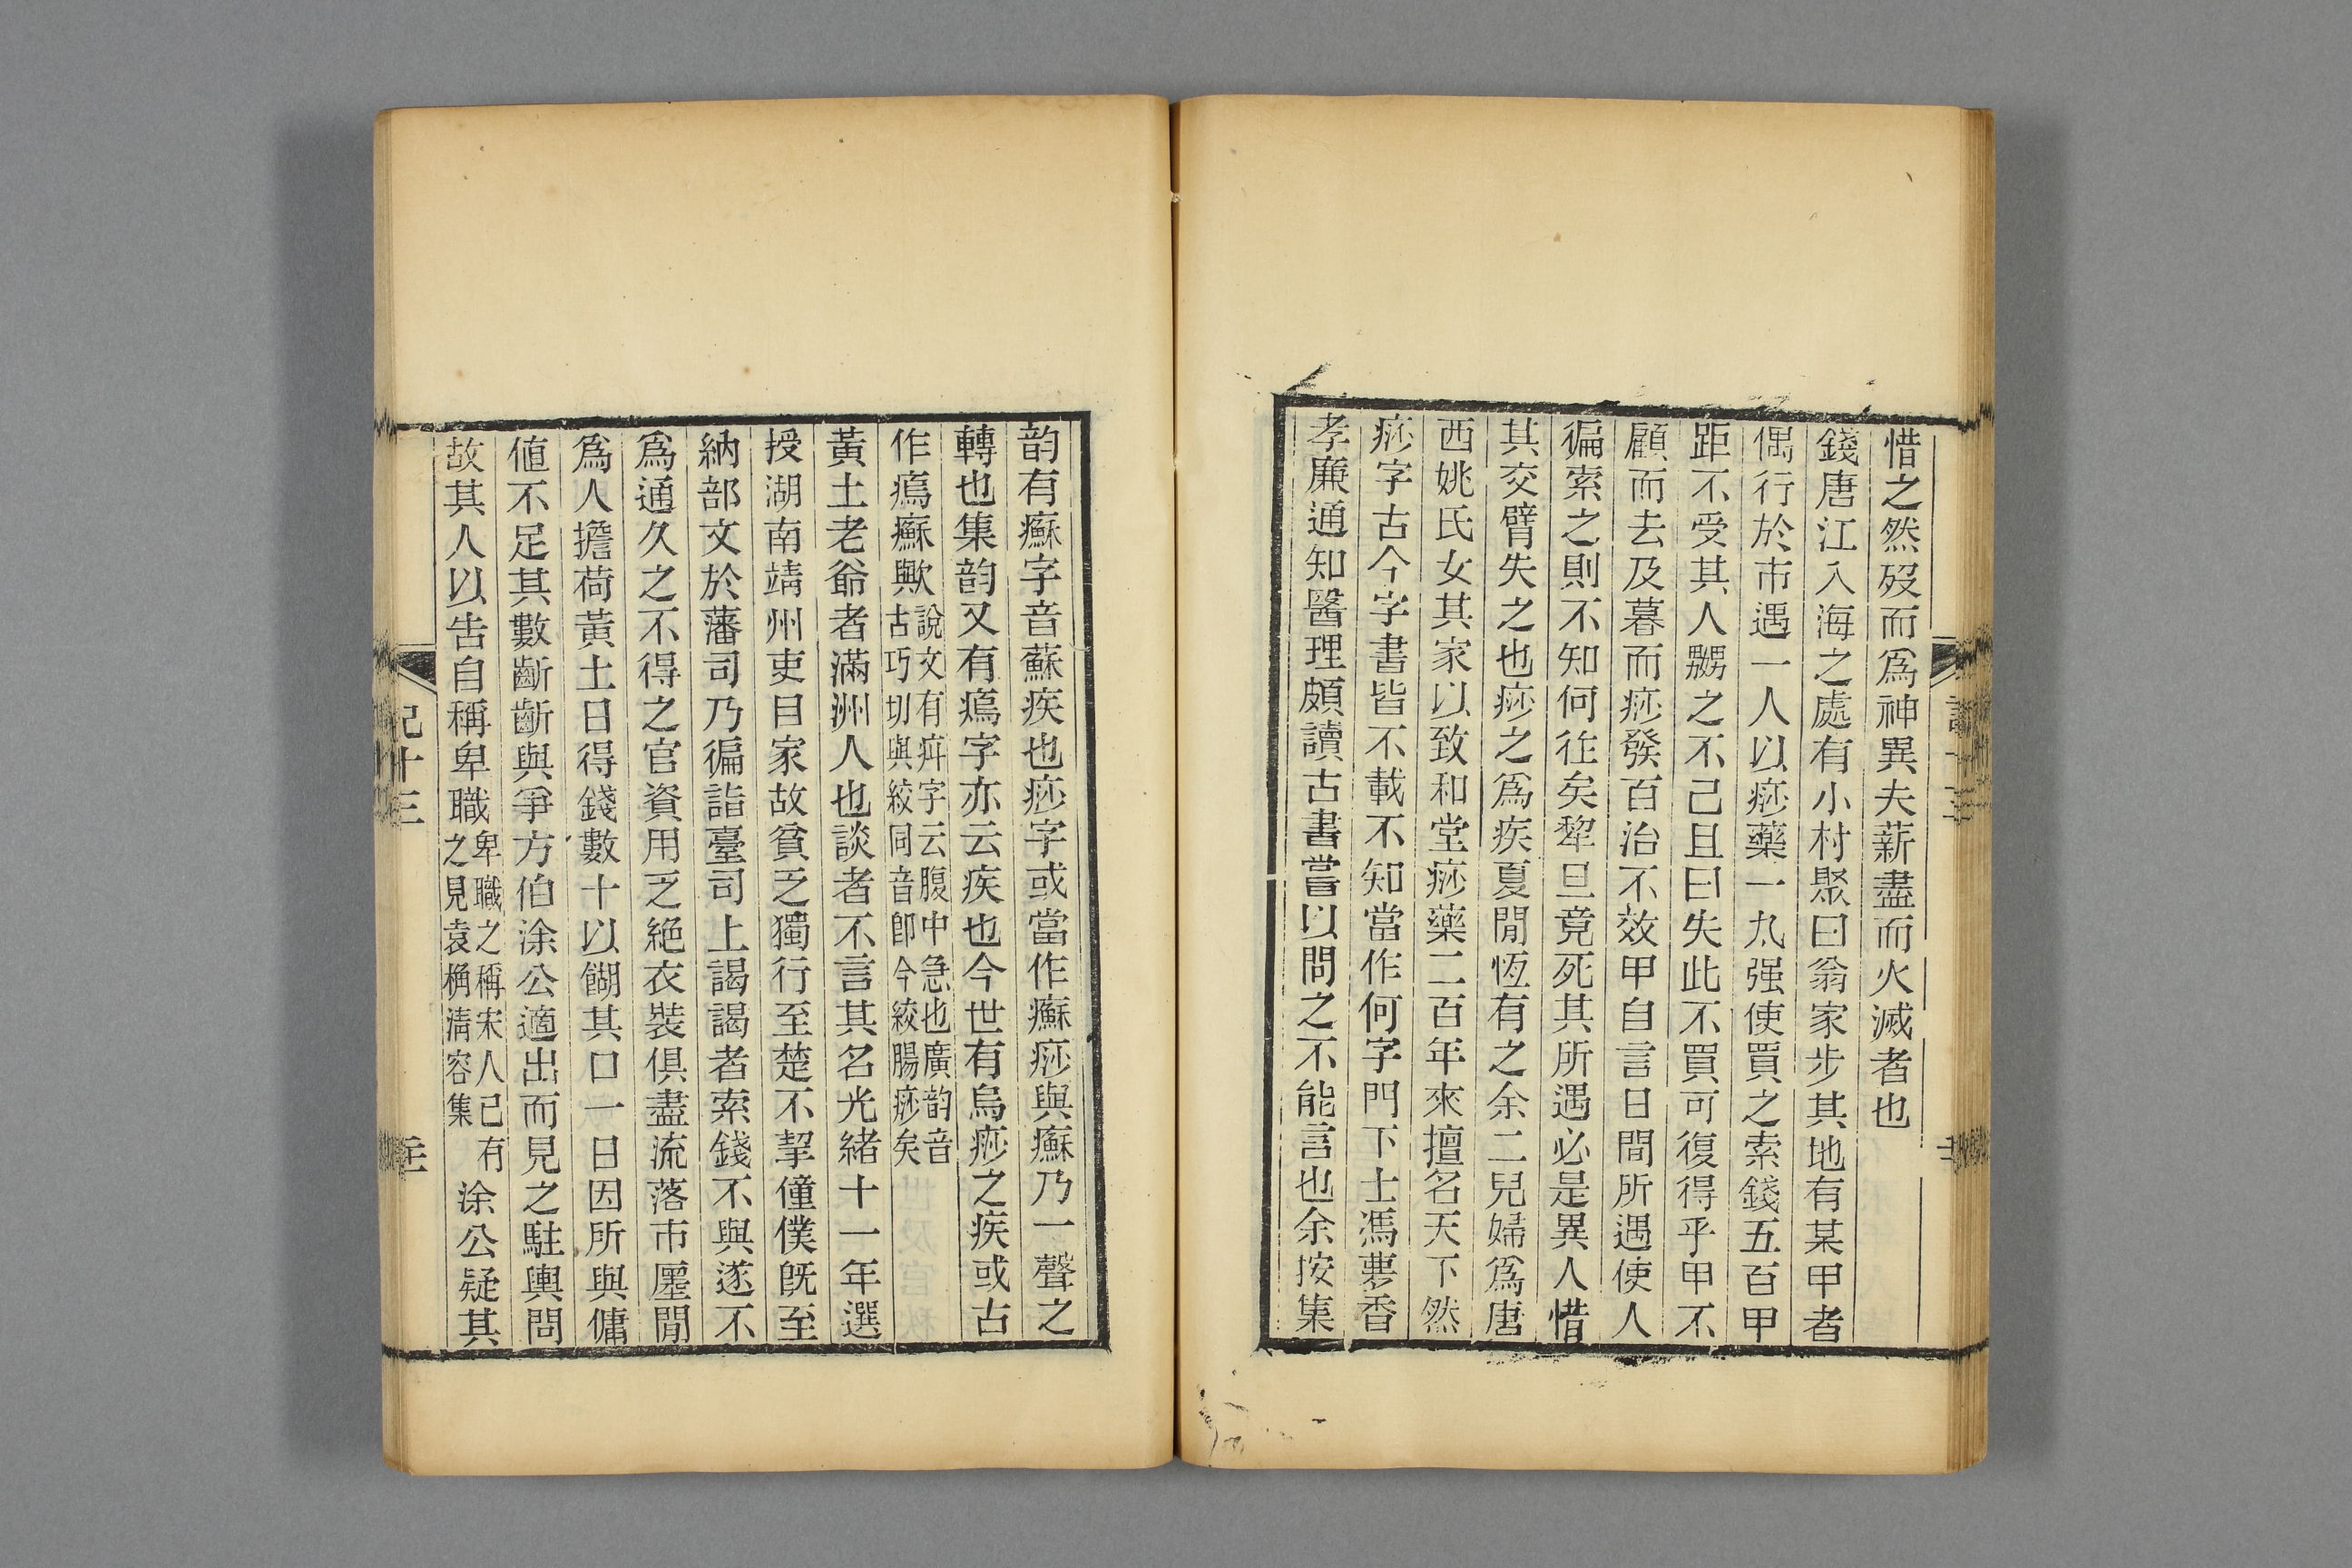 惜之然歿而爲神異夫薪盡而火滅者也
錢唐江入海之處有小村聚曰翁家步其地有某甲者
偶行於市遇一人以痧藥一丸强使買之索錢五百甲
距不受其人嬲之不已且曰失此不買可復得乎甲不
顧而去及暮而痧發百治不效甲自言日間所遇使人
徧索之則不知何往矣犂旦竟死其所遇必是異人惜
其交臂失之也痧之爲疾夏閒恆有之余二兒婦爲唐
西姚氏女其家以致和堂痧藥二百年來擅名天下然
痧字古今字書皆不載不知當作何字門下士馮夢香
孝廉通知醫理頗讀古書嘗以問之不能言也余按集
韵有癬字音蘇疾也痧字或當作癬痧與癬乃一聲之
轉也集韵又有瘑字亦云疾也今世有烏痧之疾或古
作瘑癬歟說文有疛字云腹中急也廣韵音
古巧切與絞同音卽今絞腸痧矣
黃土老爺者滿洲人也談者不言其名光緒十一年選
授湖南靖州吏目家故貧乏獨行至楚不挈僮僕旣至
納部文於藩司乃徧詣臺司上謁謁者索錢不與遂不
爲通久之不得之官資用乏絶衣裝俱盡流落市廛閒
爲人擔荷黃土日得錢數十以餬其口一日因所與傭
値不足其數齗齗與爭方伯涂公適出而見之駐輿問
故其人以告自稱卑職卑職之稱宋人已有
之見袁桷淸容集涂公疑其
記十三